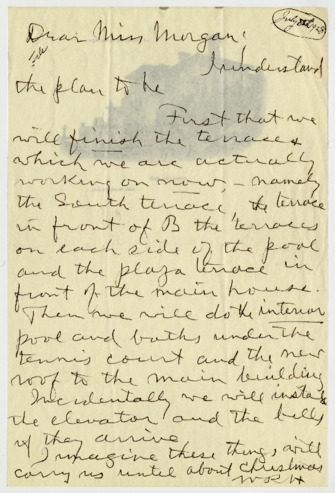 July
Dear Miss Morgan:
File
I understand
the plan to be
First that we
will finish the terraces
which we are actually
working on now, - namely
the South terrace, the terrace
in front of B the terraces
on each side of the pool
and the plaza terrace in
front of the main house.
Then we will do the interior
pool and baths under the
tennis court and the new
roof to the main building
Incidentally we will install
the elevator and the bells
if they arrive
I imagine these things will
carry us until about Christmas
WRH